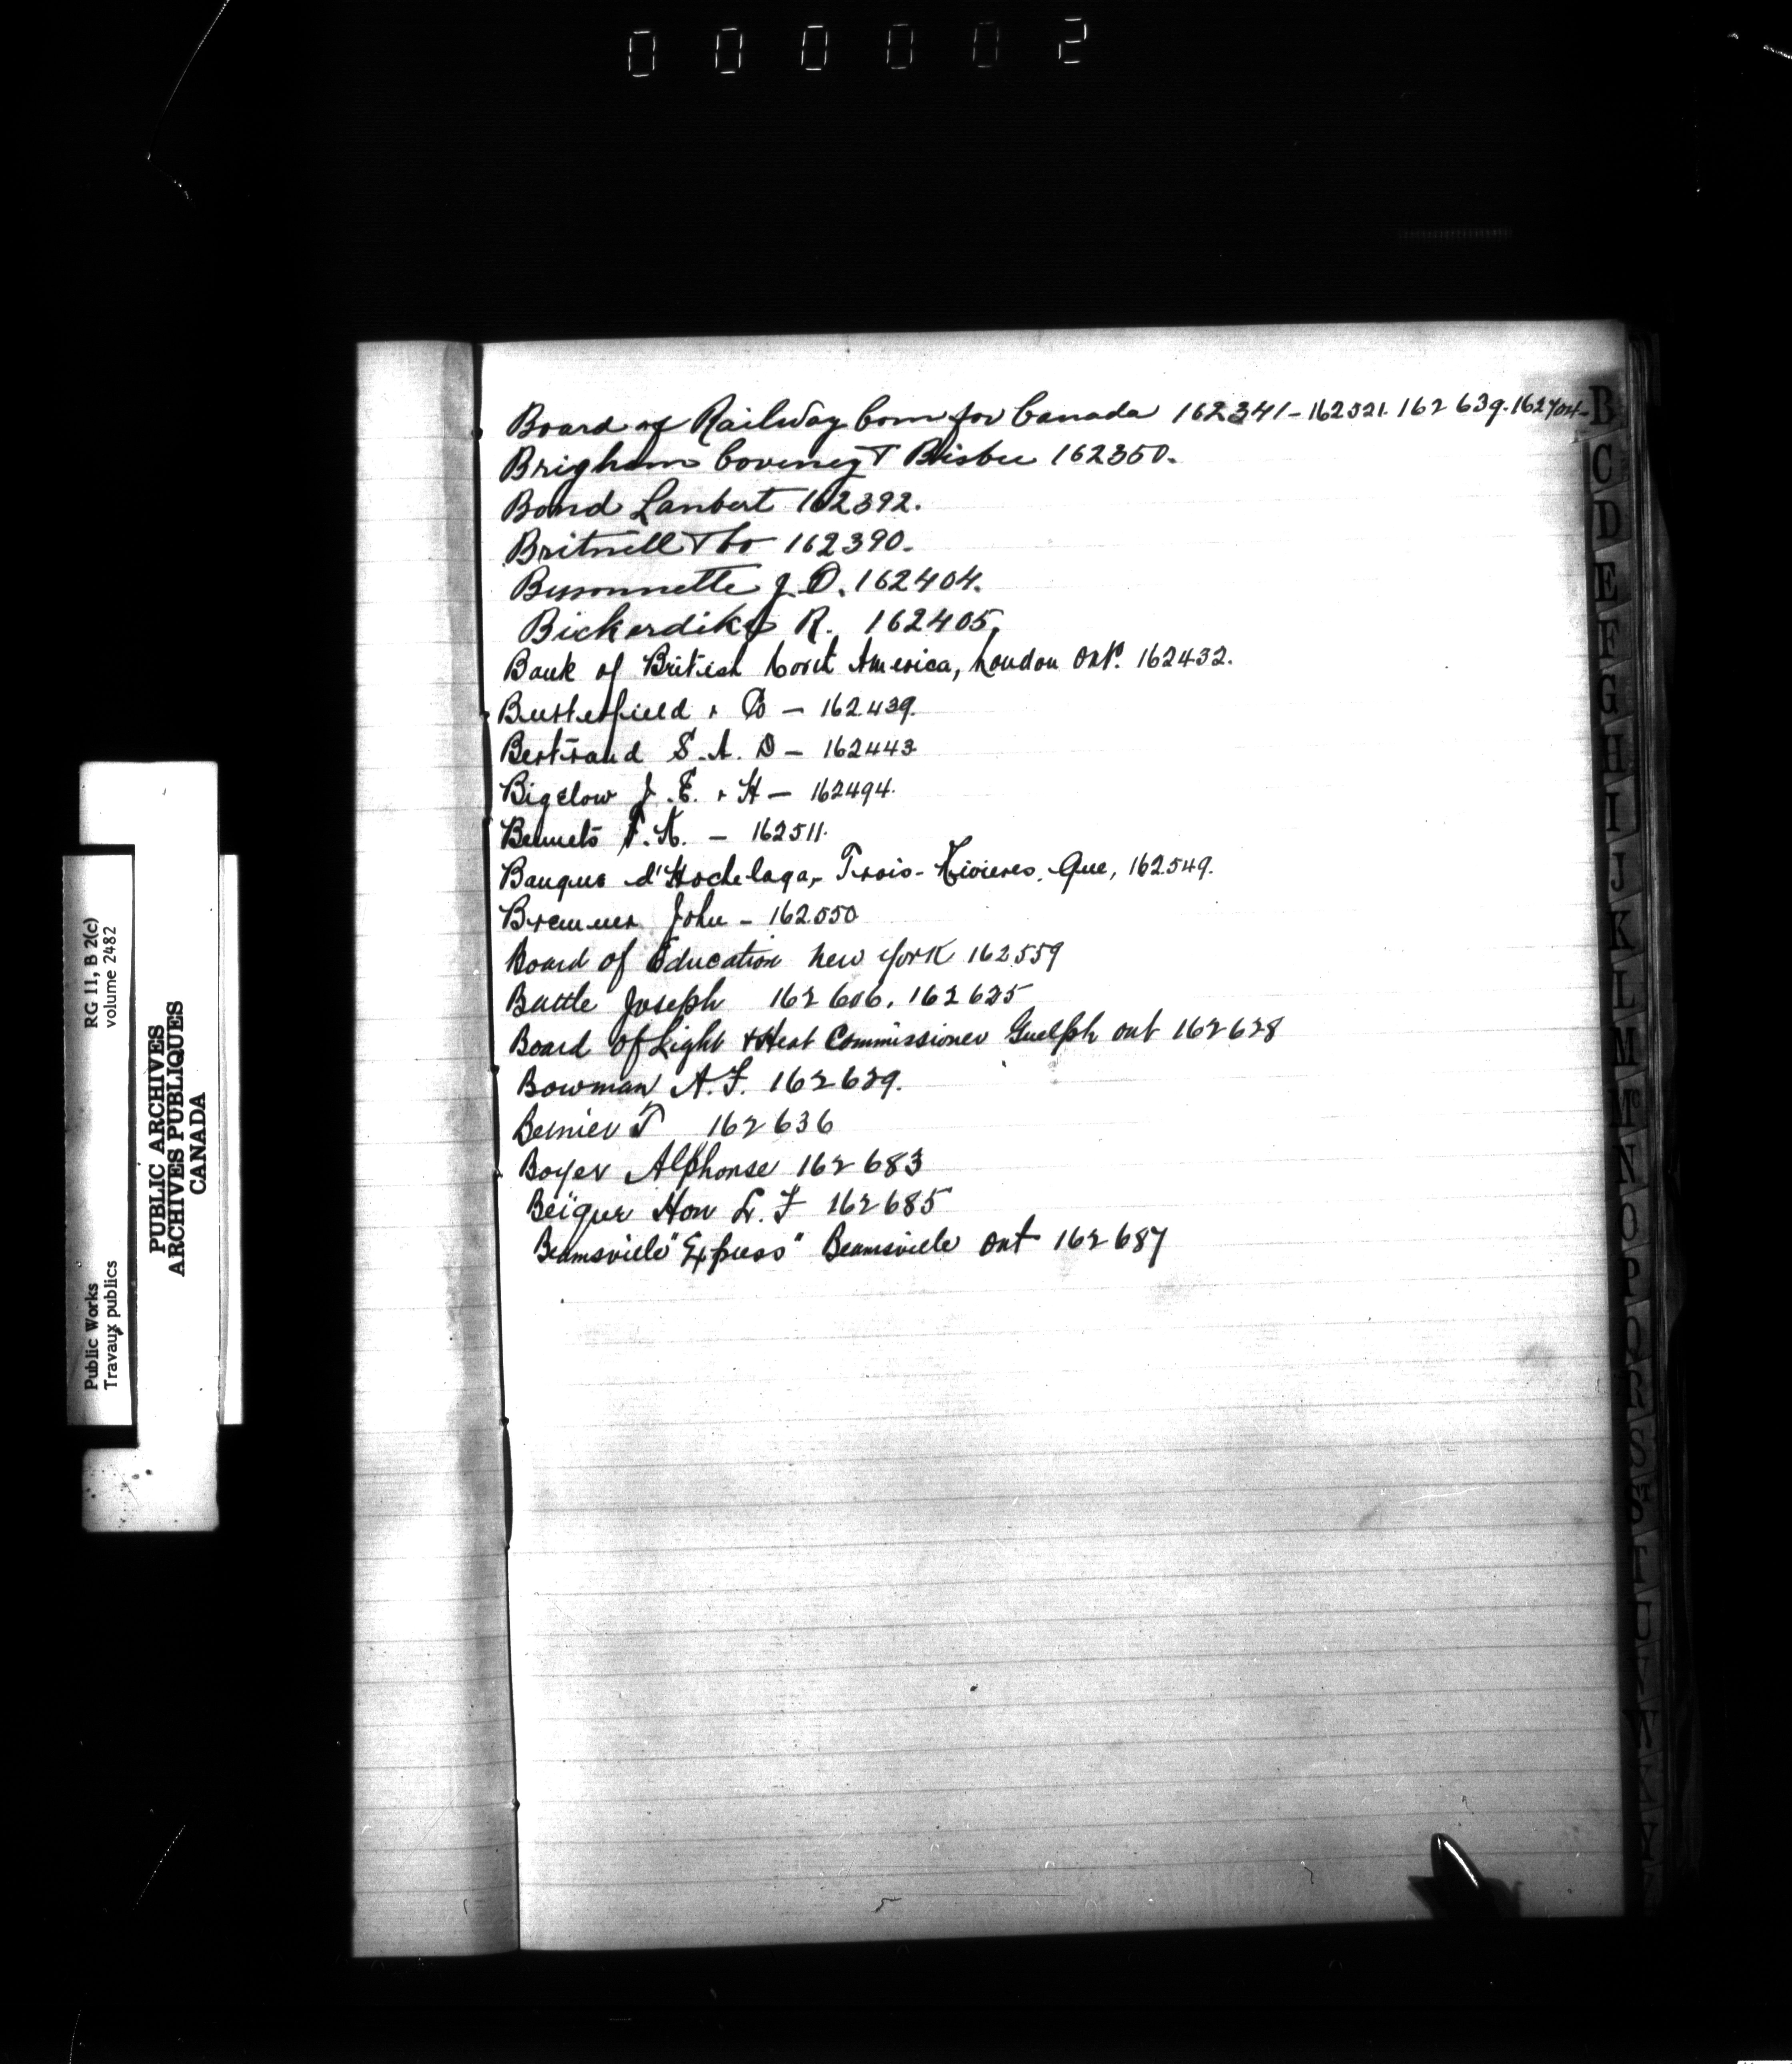 000002
Board of Railway Com for Canada 162341-162521. 162639-162704-
Brigham Coveney & Bisbee 162350.
Bond Lambert 162392.
Britnell & Co 162390.
Bissonnette J. O. 162404.
Bickerdike R. 162405.
Bank of British North America, London Ont. 162432.
Butterfield & Co - 162439.
Bertrand S. A. D - 162443
Bigelow J. E. & H - 162494.
Bennets - 162511.
Banque d'Hochelaga, Trois-Rivieres, Que, 162549.
Bremner John - 162550
Board of Education New York 162559
Battle Joseph 162606, 162625
Board of Light & Heat Commissioner Guelph Ont 162628
Bowman A. F. 162629.
Bernier T 162636
Boyer Alphonse 162683
Beïque Hon L. F 162685
Beamsville "Express" Beamsville Ont 162687
B
C
D
E
F
G
H
I
J
K
L
M
Mc
N
O
P
Q
R
S
Public Works
Travaux publics
RG 11, B 2(c)
volume 2482
PUBLIC ARCHIVES
ARCHIVES PUBLIQUES
CANADA